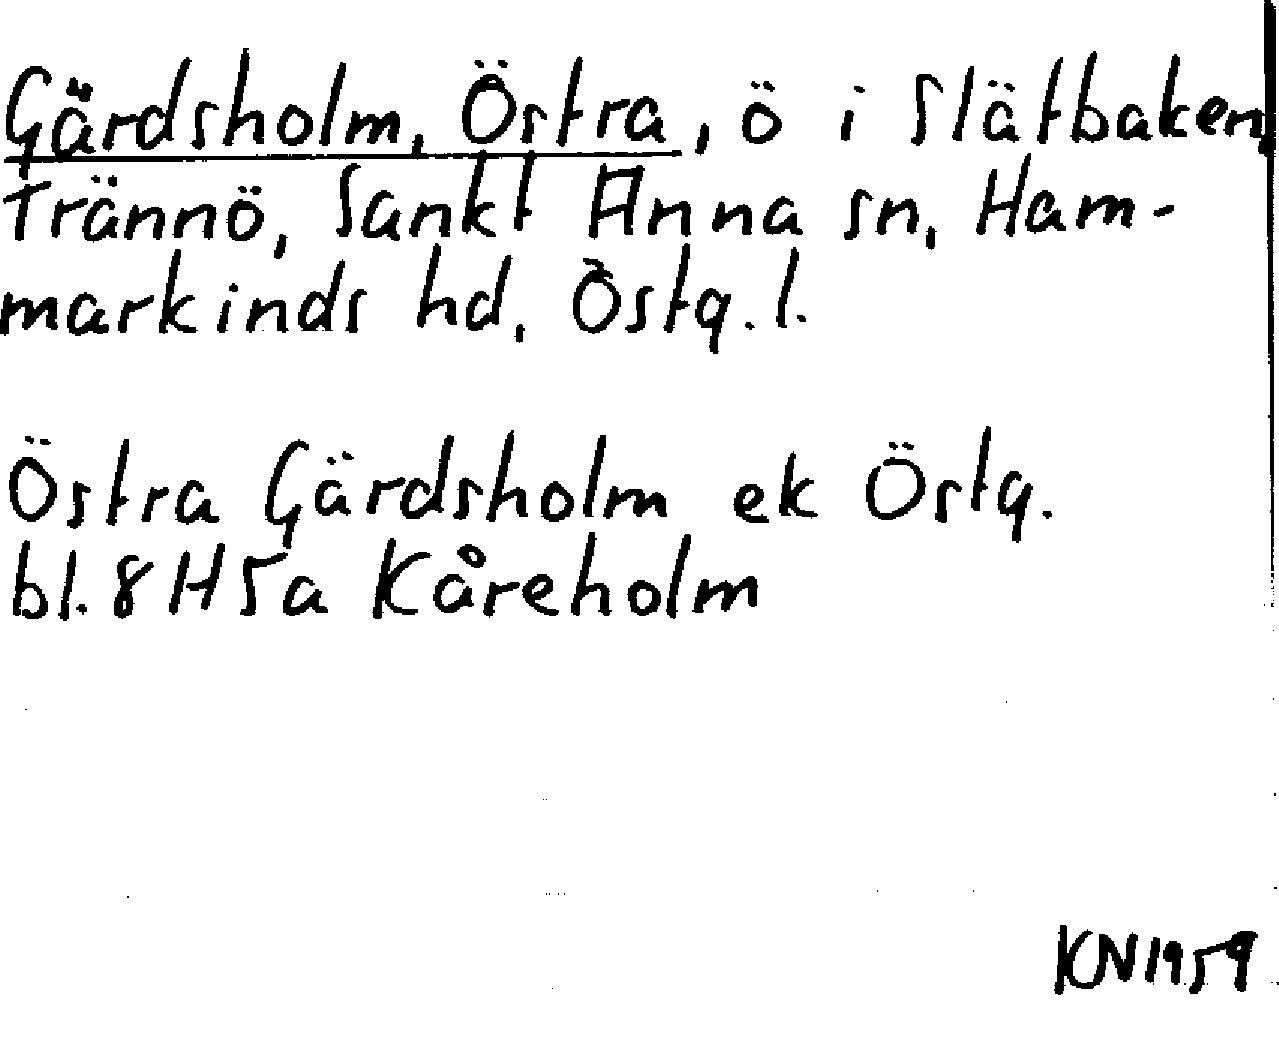 Gärdsholm, Östra, ö i Slätbaken,
Trännö, Sankt Anna sn, Ham-
markinds hd, Östg. l.
Östra Gärdsholm ek Östg.
bl. 8 H 5a Kåreholm
KN 1959